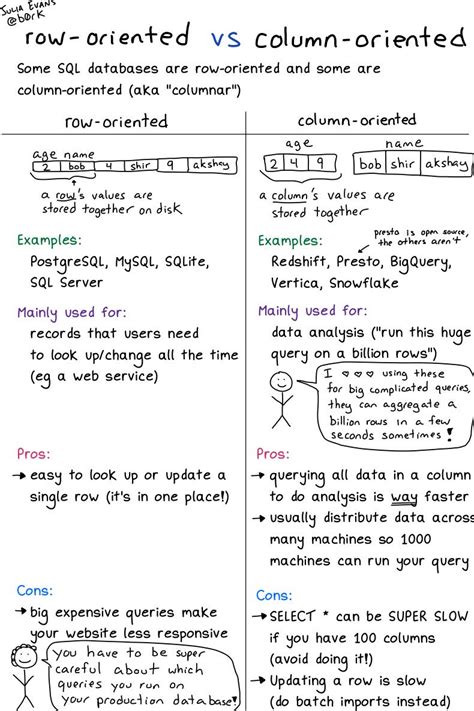 JULIA EVANS
@b0rk
row-oriented vs column-oriented
Some SQL databases are row-oriented and some are
column-oriented (aka "columnar")
row-oriented
age name
2 bob 4 shir 9 akshay
a row's values are
stored together on disk
Examples:
PostgreSQL, MySQL, SQLite,
SQL Server
Mainly used for:
records that users need
to look up/change all the time
(eg a web service)
Pros:
→ easy to look up or update a
single row (it's in one place!)
Cons:
→ big expensive queries make
your website less responsive
you have to be super
careful about which
queries you run on
your production database!
column-oriented
age name
2 4 9 bob shir akshay
a column's values are
stored together
presto is open source,
the others aren't
Examples:
Redshift, Presto, BigQuery,
Vertica, Snowflake
Mainly used for:
data analysis ("run this huge
query on a billion rows")
I ♡ ♡ ♡ using these
for big complicated queries,
they can aggregate a
billion rows in a few
seconds sometimes!
Pros:
→ querying all data in a column
to do analysis is way faster
→ usually distribute data across
many machines so 1000
machines can run your query
Cons:
→ SELECT * can be SUPER SLOW
if you have 100 columns
(avoid doing it!)
→ Updating a row is slow
(do batch imports instead)